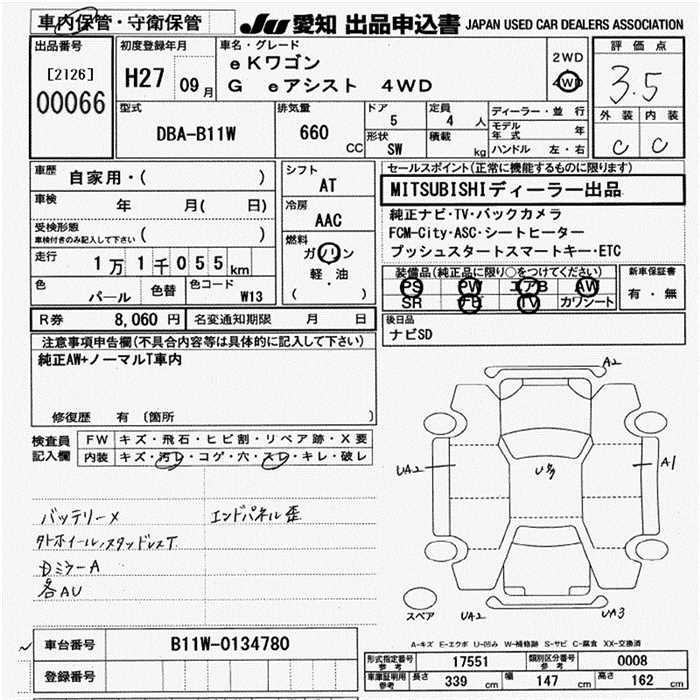 車内保管・守衛保管
JU 愛知 出品申込書 JAPAN USED CAR DEALERS ASSOCIATION
出品番号
[2126]
00066
初度登録年月
H27 09月
車名・グレード
eKワゴン
G eアシスト 4WD
2WD
4WD
評価点
3.5
外装 内装
C C
型式
DBA-B11W
排気量
660 CC
ドア
5
定員
4 人
形状
SW
積載
kg
ディーラー・並行
モデル年式 年
ハンドル 左・右
車歴
自家用・( )
車検
年 月( 日)
受検形態
車検付きのみ記入して下さい ( )
走行
1万1千055km
色
パール
色替
色コード
W13
シフト
AT
冷房
AAC
燃料
ガソリン
軽・油
( )
セールスポイント(正常に機能するものに限ります)
MITSUBISHIディーラー出品
純正ナビ・TV・バックカメラ
FCM-City・ASC・シートヒーター
プッシュスタートスマートキー・ETC
装備品(純正品に限り○をつけてください)
PS PW エアB AW
SR TV カワシート
新車保証書
有・無
R券 8,060 円
名変通知期限 月 日
後日品
ナビSD
注意事項申告欄(不具合内容等は具体的に記入して下さい)
純正AW+ノーマルT車内
修復歴 有 〔箇所 〕
検査員
記入欄
FW キズ・飛石・ヒビ割・リペア跡・X要
内装 キズ・汚レ・コゲ・穴・スレ・キレ・破レ
バッテリーメ エンドパネル歪
タトホイール,スタッドレスT
DミラーA
各AU
A2
UA2
A1
スペア
UA2
UA3
A-キズ E-エクボ U-凹み W-補修跡 S-サビ C-腐食 XX-交換済
車台番号 B11W-0134780
登録番号
形式指定番号 参考 17551
類別区分番号 参考 0008
車庫証明用 参考 長さ 339 cm 幅 147 cm 高さ 162 cm